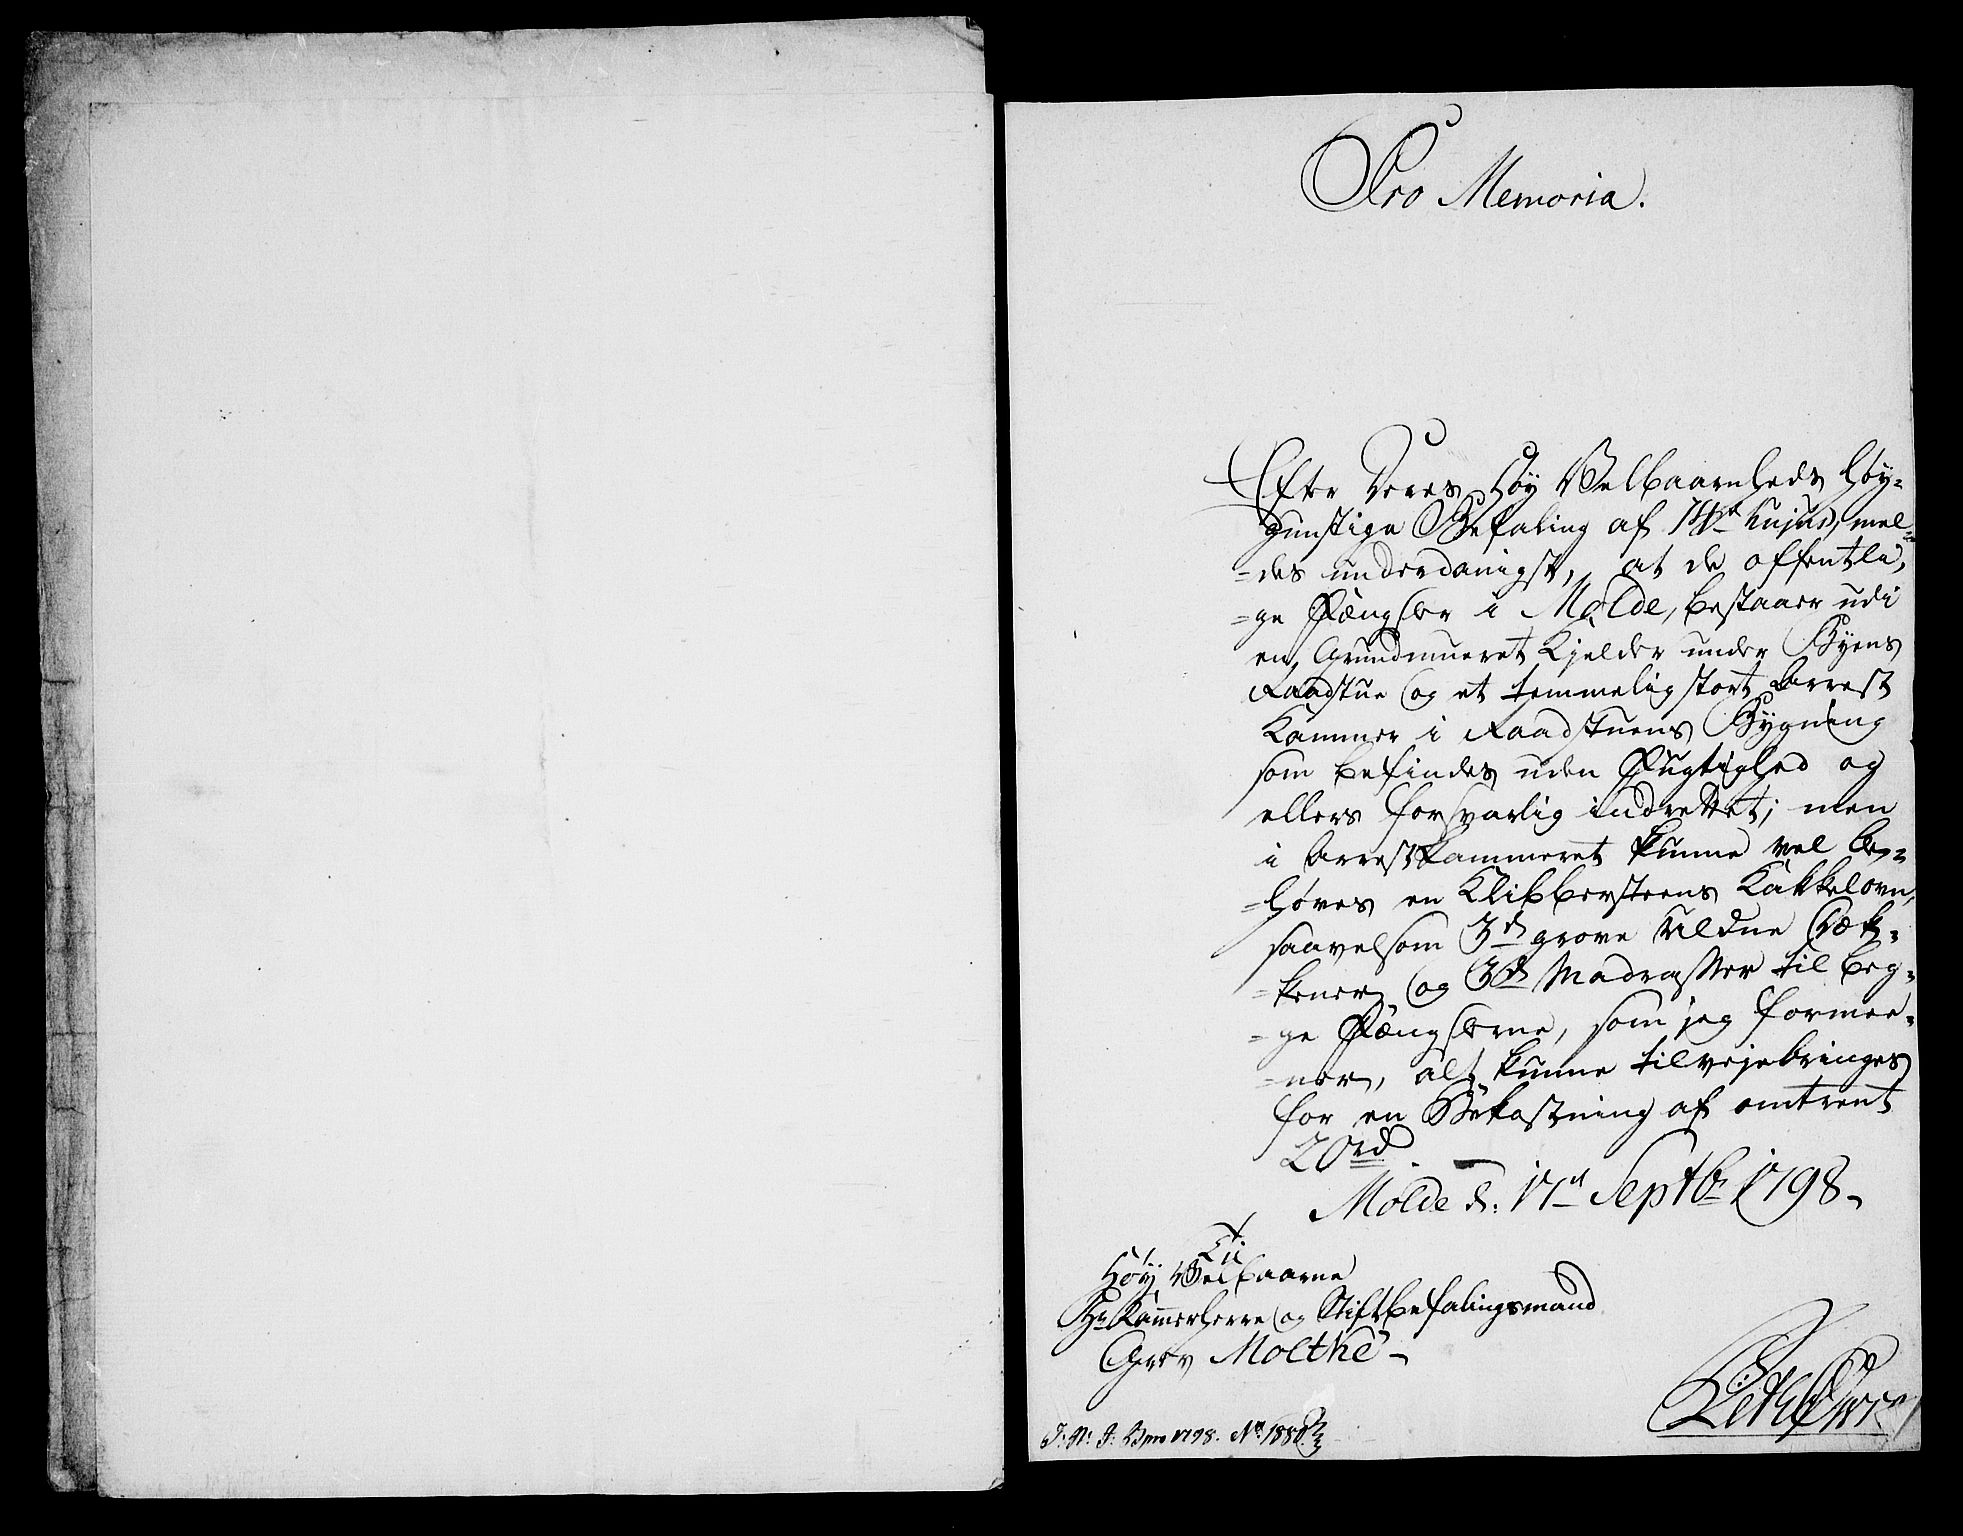 Pro Memoria.
Efter Deres Høy Velbaarnheds høy-
gunstige Befaling af 14de hujus, mel-
-des underdanigst, at de offentli-
-ge Fængsler i Molde, bestaaer udi
en Grundmueret Kjelder under Byens
Raadstue og et temmelig stort Arrest
Kammer i Raadstuens Bygning
som befindes uden Fugtighed og
ellers forsvarlig indrettet; men
i Arrestkammeret kunne vel be-
-høves en Klibbersteens Kakkelovn,
saavelsom 3de grove uldne Dæk-
-kener og 3de Madrasser til beg-
-ge Fængslerne, som jeg formee-
-ner, alt kunne tilvejebringes
for en Bekostning af omtrent
20rd.
Molde d: 17de Septbr 1798-
Til
Høy Velbaarne
Hr Kammerherre og Stiftbefalingsmand
Grev Molthe-
J: N: J: 1798. No 1880